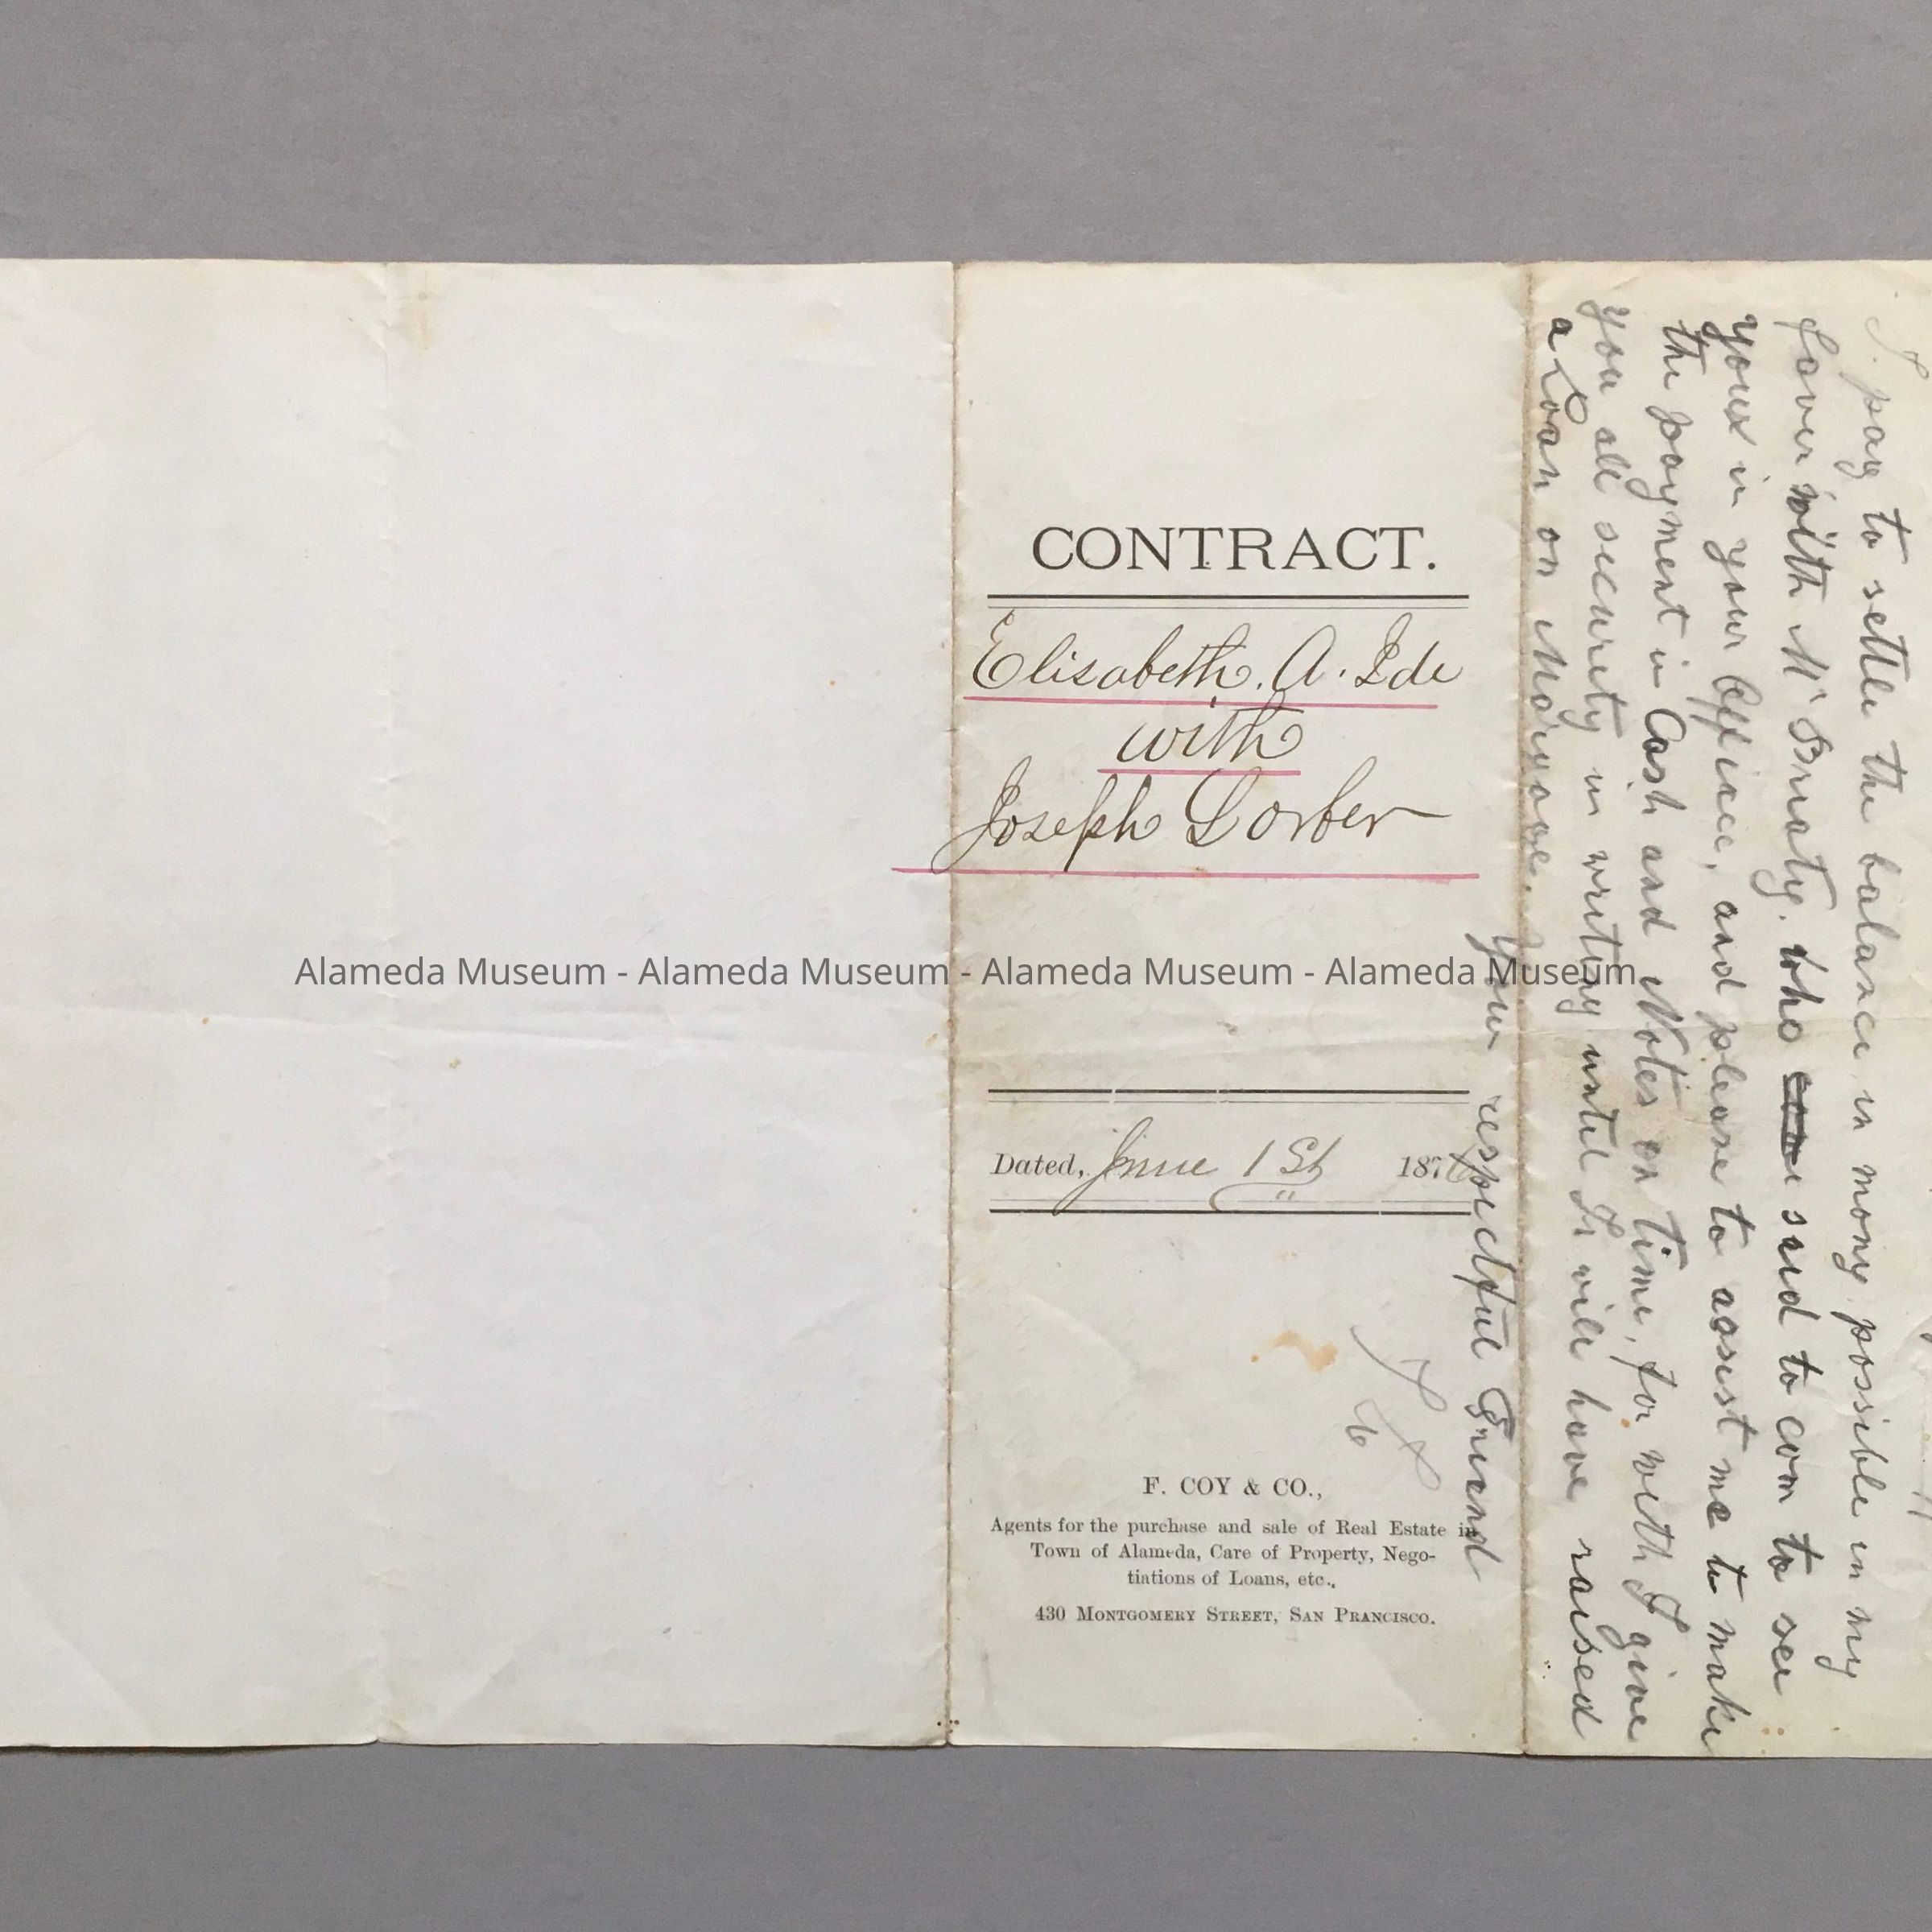 CONTRACT.
Elisabeth. A. Ide
with
Joseph Lorber
Alameda Museum - Alameda Museum - Alameda Museum - Alameda Museum
Dated, June 1 St 187
F. COY & CO.,
Agents for the purchase and sale of Real Estate in
Town of Alameda, Care of Property, Nego-
tiations of Loans, etc.,
430 MONTGOMERY STREET, SAN FRANCISCO.
I. pay to settle the balance in mony possible in my
favour with Mr who send to com to see
youx in your Office, and please to assist me to make
the poyment in Cash and Notes on time, for with I give
you all security in writing until I will have raised
a Loan on
Your respectful Friend
J L